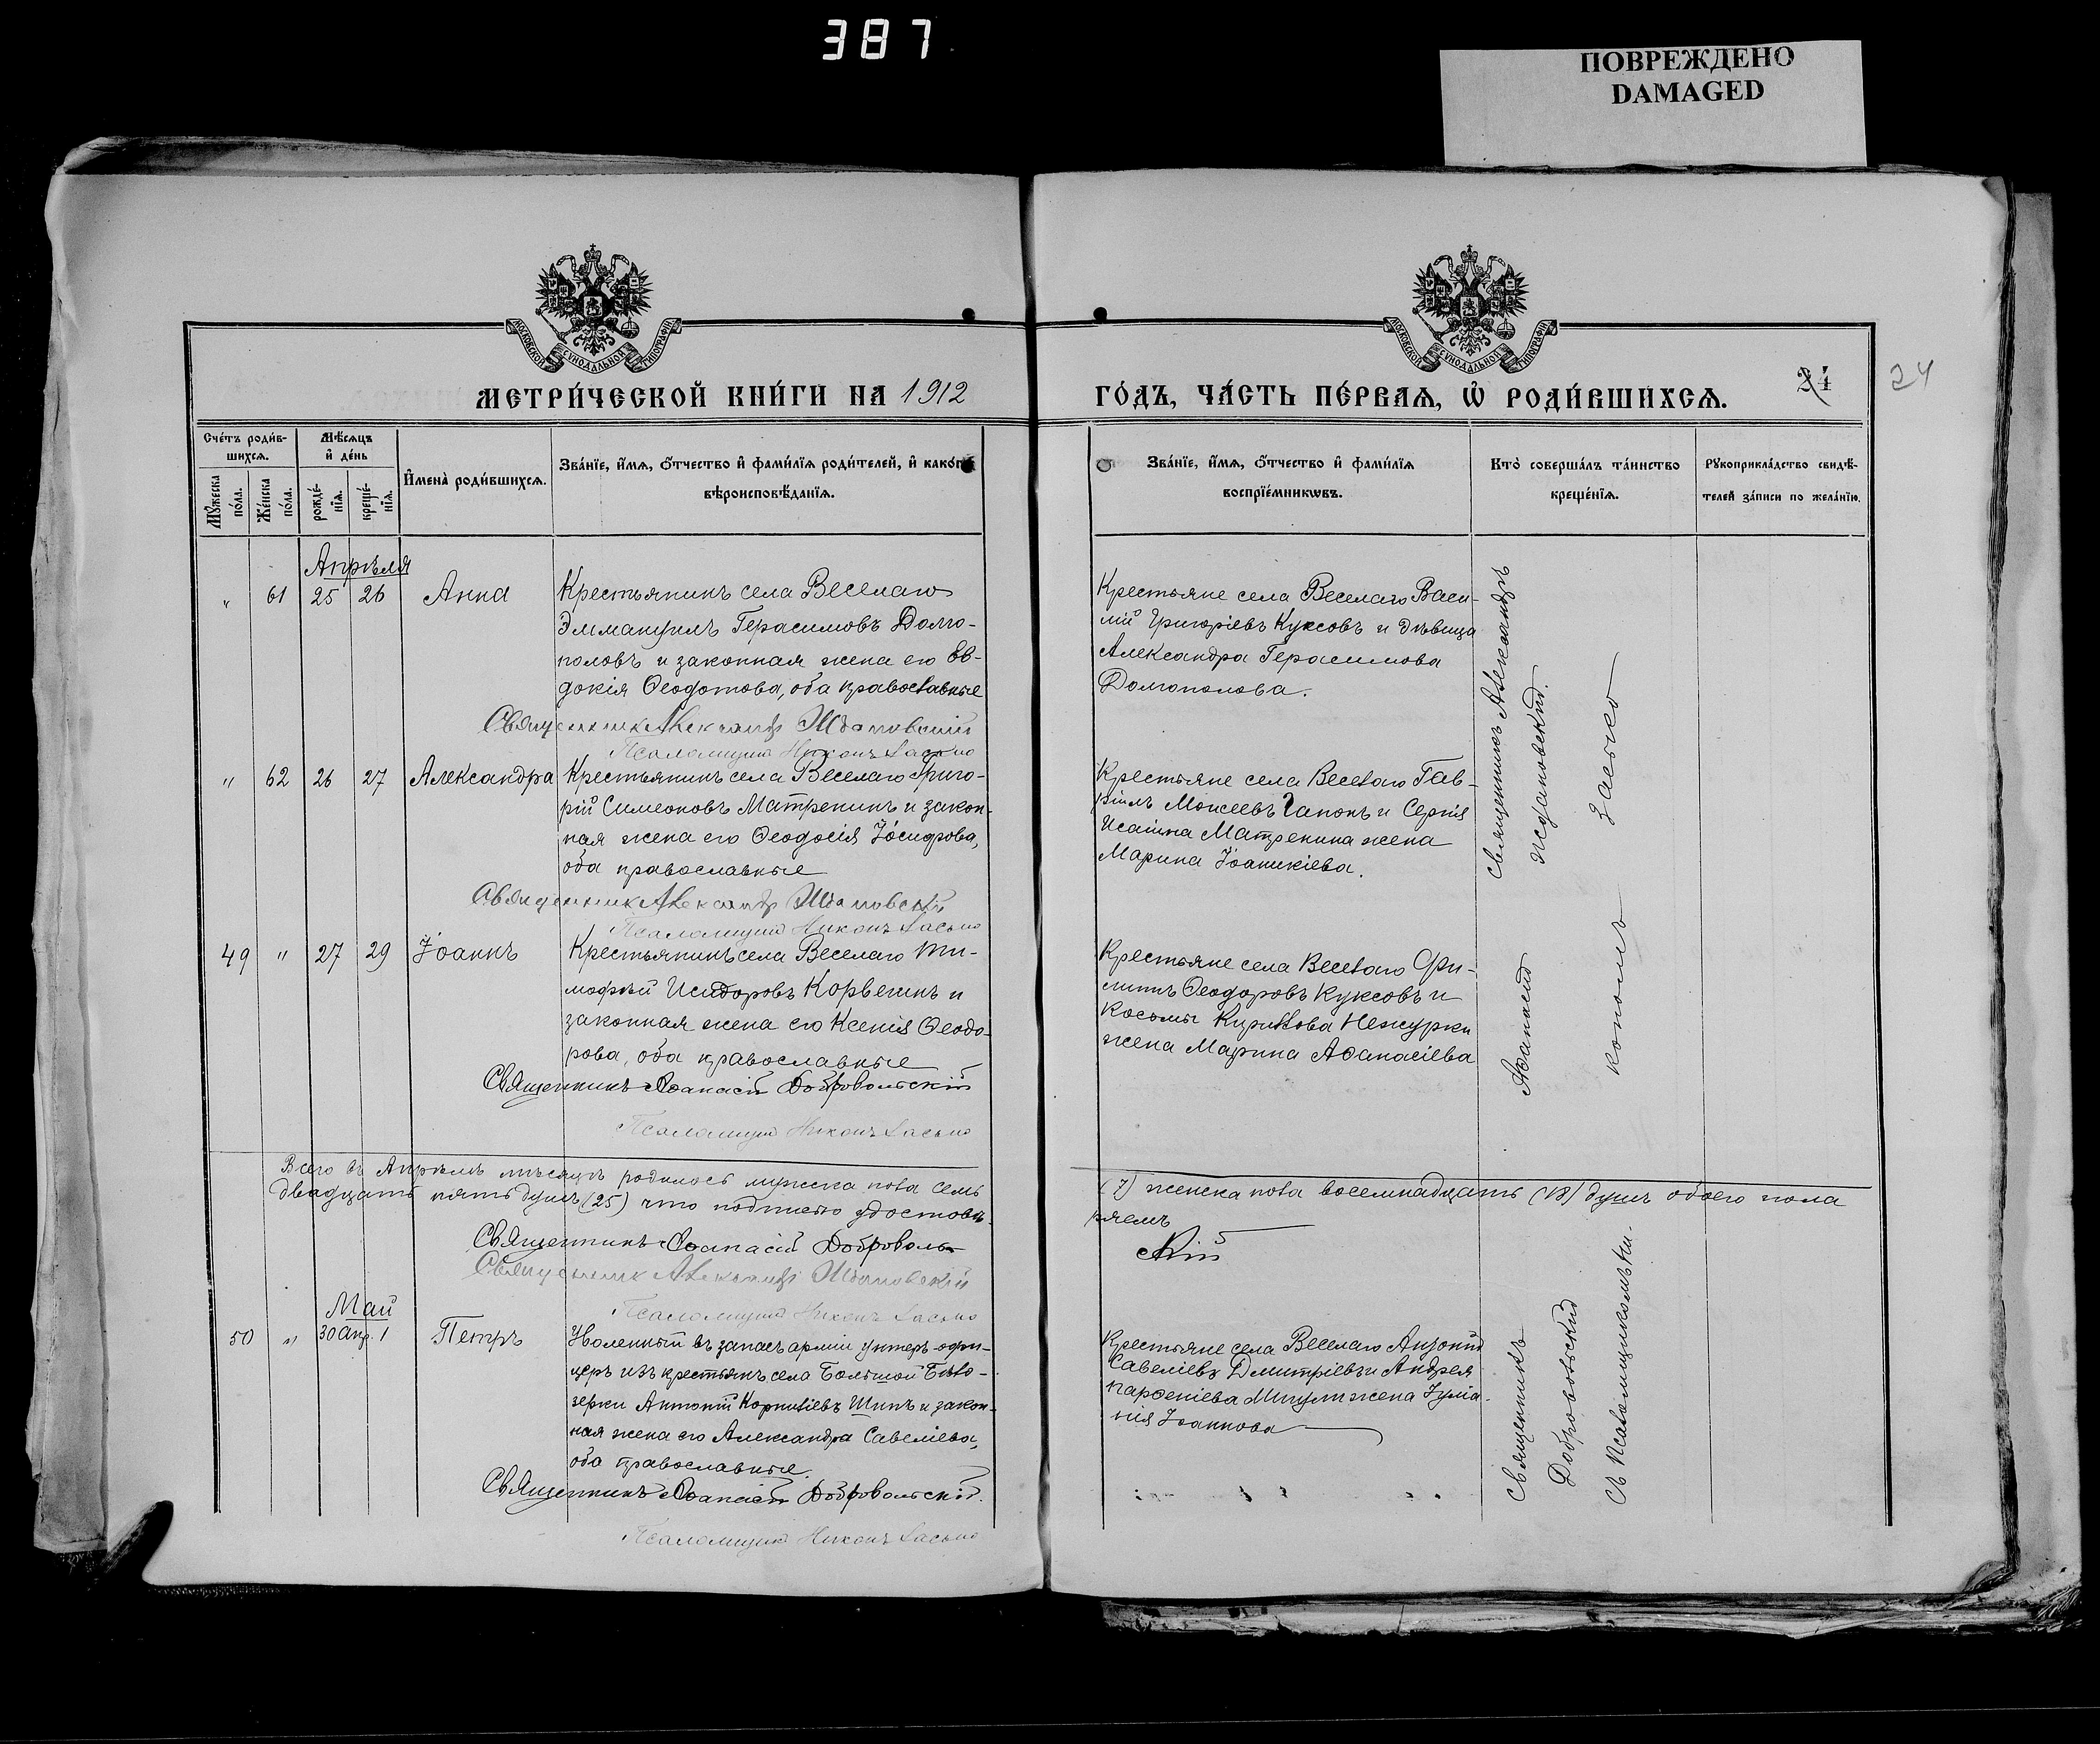 387
ПОВРЕЖДЕНО
DAMAGED
МОСКОВСКОЙ СУНОДАЛЬНОЙ ТИПОГРАФІИ
МОСКОВСКОЙ СУНОДАЛЬНОЙ ТИПОГРАФІИ
МЕТРИ́ЧЕСКОЙ КНИ́ГИ НА 1912
ГО́ДЪ, ЧА́СТЬ ПЕ́РВАѦ, Ѡ҆ РОДИ́ВШИХСѦ.
24
24
Сче́тъ роди́в-
шихсѧ.
Мѣ́сѧцъ
и҆ де́нь
Мꙋ́жеска
по́ла.
Же́нска
по́ла.
рожде́-
нїѧ.
креще́-
нїѧ.
И҆мена̀ роди́вшихсѧ.
Зва́нїе, и҆́мѧ, ѻ҆́тчество и҆ фами́лїѧ роди́телей, и҆ како́гѡ
вѣроисповѣ́данїѧ.
Зва́нїе, и҆́мѧ, ѻ҆́тчество и҆ фами́лїѧ
воспрїе́мникѡвъ.
Кто̀ соверша́лъ та́инство
креще́нїѧ.
Рꙋкоприкла́дство свидѣ́-
телей за́писи по жела́нїю.
Апрѣля
" 61 25 26 Анна
Крестьянинъ села Веселаго
Эммануилъ Герасимовъ Долго-
половъ и законная жена его Ев-
докія Ѳеодотова, оба православные
Священникъ Александръ Ждановскій
Псаломщикъ Никонъ Засько
Крестьяне села Веселаго Васи-
лій Григоріевъ Куксовъ и дѣвица
Александра Герасимова
Долгополова.
Священникъ Александръ
Ждановскій.
" 62 26 27 Александра
Крестьянинъ села Веселаго Григо-
рій Симеоновъ Матренинъ и закон-
ная жена его Ѳеодосія Іосифова,
оба православные
Священникъ Александръ Ждановскій
Псаломщикъ Никонъ Засько
Крестьяне села Веселаго Гав-
ріилъ Моисеевъ Гапонъ и Сергія
Исаіина Матренина жена
Марина Іоаникіева.
49 " 27 29 Іоаннъ
Крестьянинъ села Веселаго Ти-
мофѣй Исидоровъ Корвенинъ и
законная жена его Ксенія Ѳеодо-
рова, оба православные
Священникъ Аѳанасій Добровольскій
Псаломщикъ Никонъ Засько
Крестьяне села Веселаго Фи-
липпъ Ѳеодоровъ Куксовъ и
Косьмы Кириллова Нежурки
жена Марина Аѳанасіева
Аѳанасій
Засько
Всего въ Апрѣлѣ мѣсяцѣ родилось мужска пола семь
(7) женска пола восемнадцать (18) душъ обоего пола
двадцать пять душъ (25) что подписью удостовѣ-
ряемъ
Священникъ Аѳанасій Доброволь-
скій
Священникъ Александръ Ждановскій
Псаломщикъ Никонъ Засько
Май
50 " 30 апр. 1 Петръ
Уволенный въ запасъ арміи унтеръ-офи-
церъ изъ крестьянъ села Большой Бѣло-
зерки Антоній Корниліевъ Шипъ и закон-
ная жена его Александра Савеліева,
оба православные.
Священникъ Аѳанасій Добровольскій.
Псаломщикъ Никонъ Засько
Крестьяне села Веселаго
Савеліевъ Дмитріевъ и Андрея
Парѳеніева жена Іуліа-
нія Іоаннова
Священникъ
Добровольскій
съ псаломщикомъ